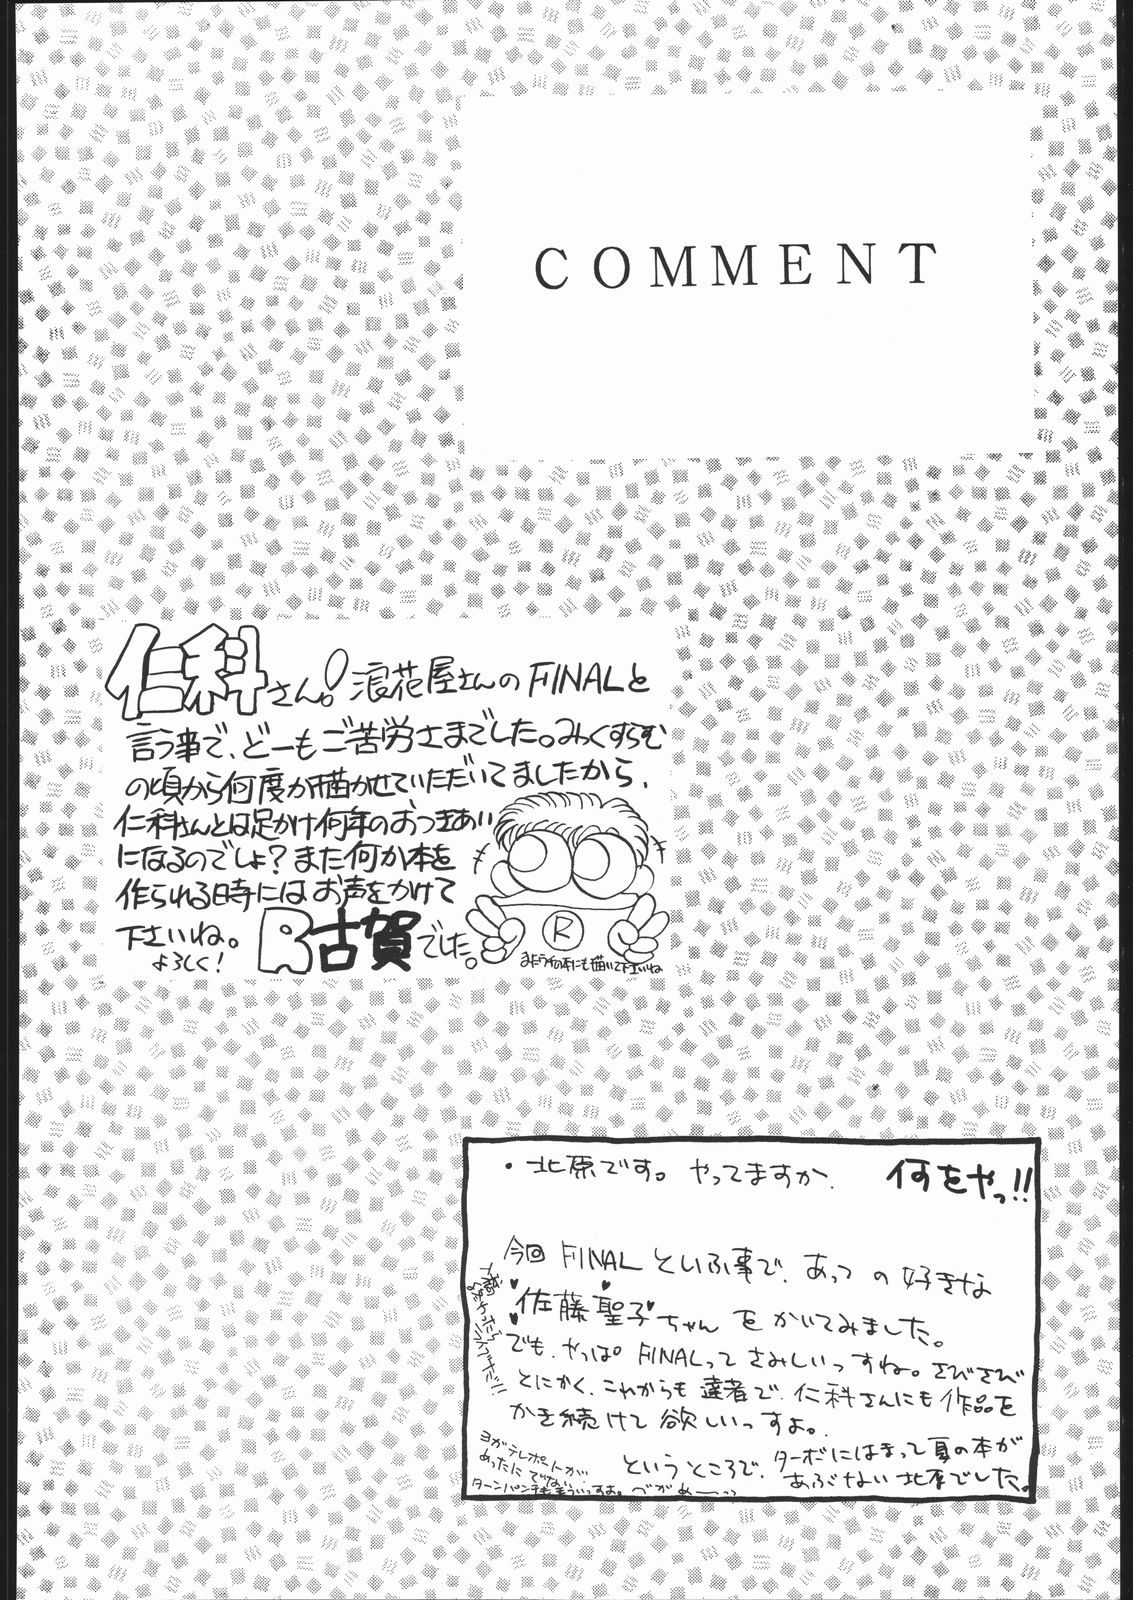 COMMENT
仁科さん! 浪花屋さんの FINALと
言う事で、どーもご苦労さまでした。みっくすらむ
の頃から何度か描かせていただいてましたから、
仁科さんとは足かけ何年のおつきあい
になるのでしょ?また何か本を
作られる時にはお声をかけて
下さいね。 R古賀でした。
よろしく!
R
またうちの本にも描いて下さいね
・北原です。やってますか。 何をやっ!!
今回 FINAL といふ事で、あっつの好きな
佐藤聖子ちゃん をかいてみました。
でも、やっぱ FINALって さみしいっすね。さびさび
とにかく、これからも達者で、仁科さんにも作品を
かき続けて欲しいっすよ。
というところで、ターボにはまって夏の本が
あぶない北原でした。
ヨガテレポートが
めったに でない